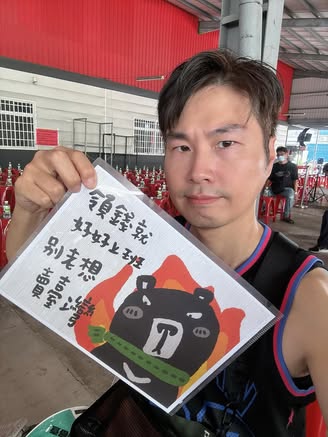 領錢就
好好上班
別老想
賣臺灣